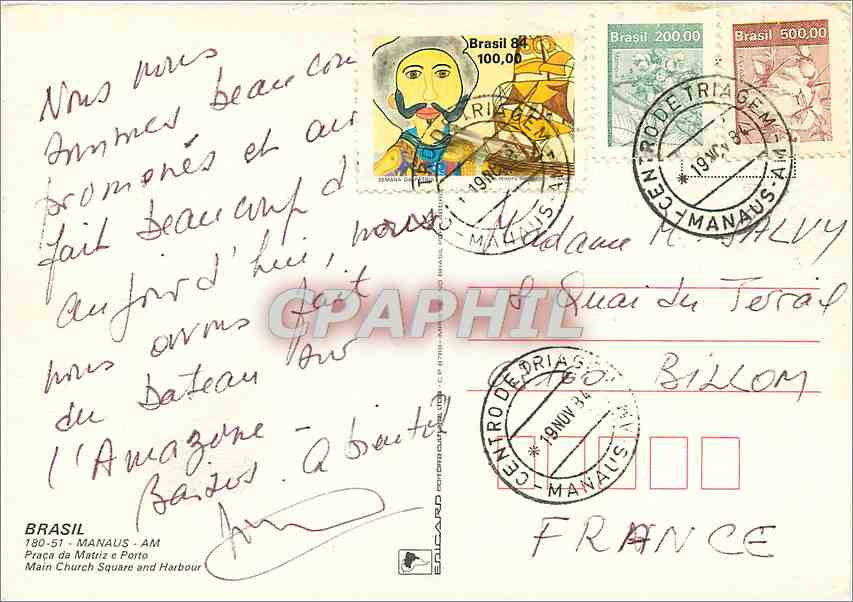 Nous nous
sommes beaucou
promenés et aur
fait beaucoup d
aujourd'hui, nous
nous avons fait
du Bateau sur
l'Amazone -
Baisers - a bientôt
Brasil 84
100,00
Brasil 200,00
Brasil 500,00
CENTRO DE TRIAGEM
19 NOV 84
MANAUS-AM
CENTRO DE TRIAGEM
*19 NOV 84
MANAUS-AM
Madame M. SALVY
Quai du Terrail
63160 BILLOM
CENTRO DE TRIAGEM
*19 NOV 84
MANAUS AM
FRANCE
CPAPHIL
BRASIL
180-51 - MANAUS - AM
Praça da Matriz e Porto
Main Church Square and Harbour
EDICARD